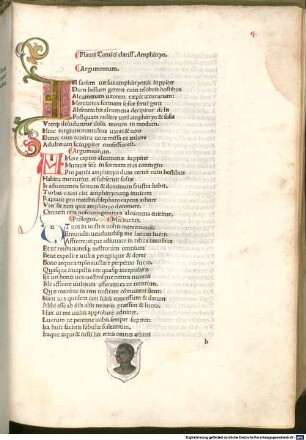 Plauti Comici clariss. Amphitryo.
Argumentum.
In faciem versus amphitryonis iuppiter
Dum bellum gereret cum telebois hostibus
Alcmenam uxorem cepit usurariam
Mercurius formam sosiae servi gerit
Absentis: his alcmena decipitur dolis
Postquam rediere veri amphitryo & sosia
Uterque deluduntur dolis mirum in modum
Hinc iurgium tumultus uxori & viro
Donec cum tonitru voce missa ex aethere
Adulterum se iuppiter confessus est.
Argumentum.
Amore captus alcmenas iuppiter
Mutavit sese in formam eius coniugis
Pro patria amphitryo dum cernit cum hostibus
Habitu mercurius ei subservit sosiae
Is advenientes servum & dominum frustra habet
Turbas uxori ciet amphitryo: atque invicem
Raptant pro moechis: blepharo captus arbiter
Uter sit non quit amphitryo decernere
Omnem rem noscunt: geminos alcmena enititur.
Prologus. Mercurius.
Ut vos in vostris voltis mercimoniis
Emundis vendundisque me laetum lucris
Afficere atque adiuvare in rebus omnibus
Et ut res rationesque vestrorum omnium
Bene expedire vultis peregrique & domi
Bonoque atque amplo auctare perpetuo lucro
Quasque incepistis res quasque inceptabitis
Et uti bonis vos vestrosque omnis nuntiis
Me afficere vultis: ea afferam: ea ut nuntiem
Quae maxime in rem vostram communem sient
Nam vos quidem iam scitis concessum & datum
Mihi esse ab diis aliis nuntiis praesim & lucro
Haec ut me vultis approbare: adnitier
Lucrum ut perenne vobis semper suppetat
Ita huic facietis fabulae silentium
Itaque aequi & iusti hic eritis omnes arbitri
b